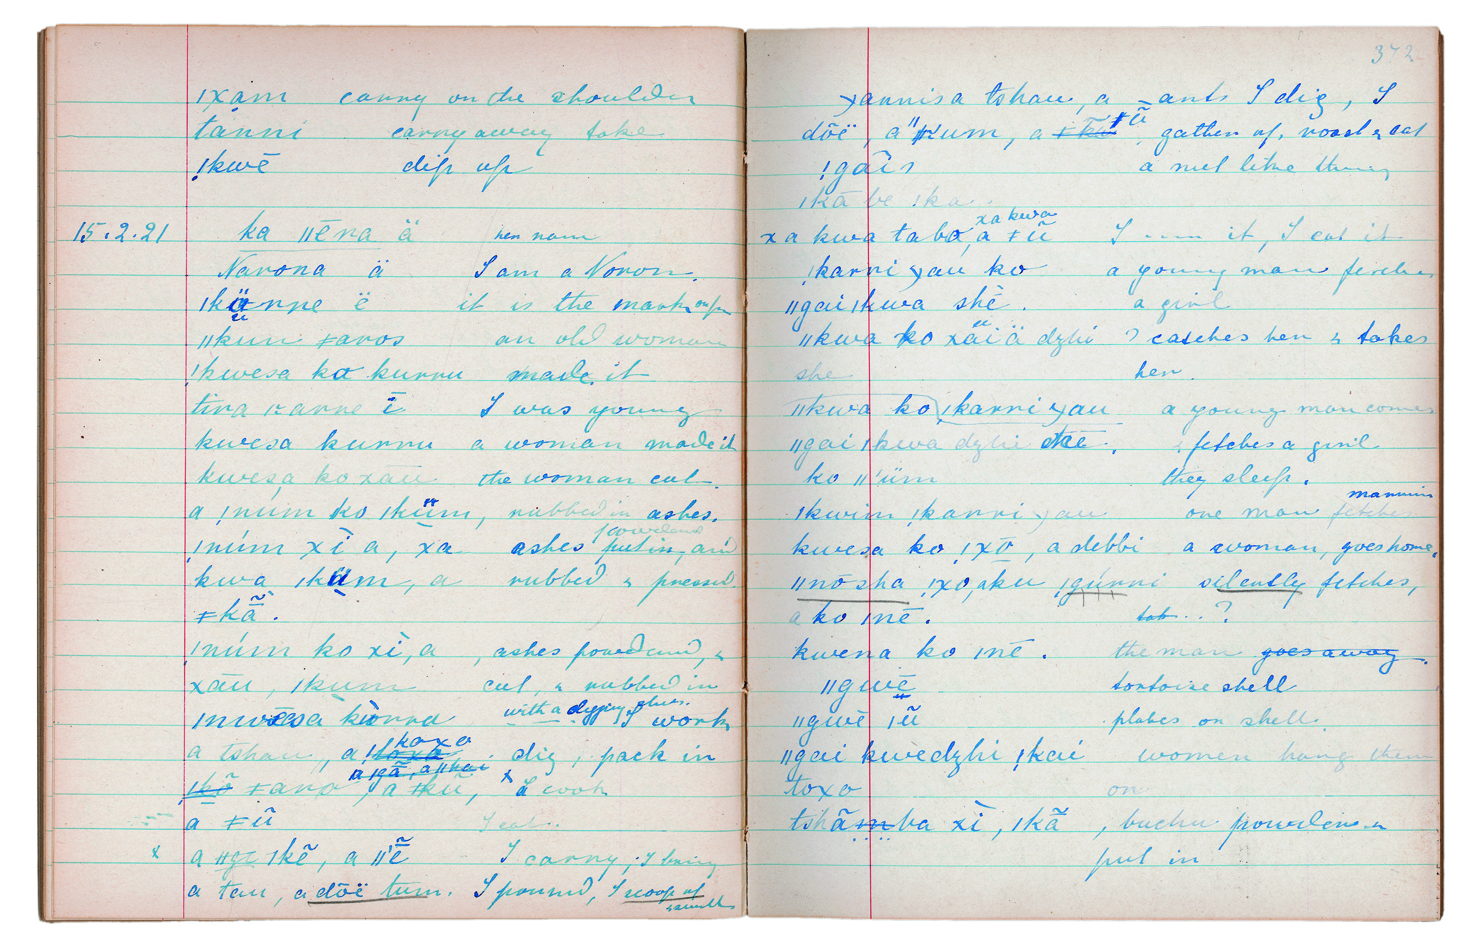 ǀxam carry on the shoulder
tanni carry away take
ǃkwē dip up
15.2.21 ka ǁēna ä her nam
Narona ä I am a Noron.
ǀkänne ë it is the mark
ǁkun ǂaros an old woman
ǃkwesa ko kurru made it
tira anne ī I was young
kwesa kurru a woman made it
kwesa ko xāū the woman cut.
a ǃnúm ko ǀküm, rubbed in ashes.
powdered
ǃnúm xì a, xa ashes put in, and
kwa ǀkam, a rubbed & pressed
ǂkã̄.
ǃnúm ko xì, a , ashes powd and, &
xāu, ǀkum cut, & rubbed in
ǀnwēsa kùrra with a digging I work
koxo
a tshau, a toxa dig, pack in
a ǀgã, a ǁkai
ǀkõ ǂaro, a ǂkũ, x I cook
a ǂũ I eat.
x a ǁge ǀkẽ, a ǁ'ẽ I carry, I bring
a tau, a dōë tum. I pound, I scoop up
& swallow
372
ɣannisa tshau, a – ants I dig, I
dōë, a ǁkum, a ǂũ gather up, roast & eat
ǃgaîs a net like thing
ǀkā be ǀka
xa kwa
xa kwa tabo, a ǂũ I --- it, I eat it
ǃkarri ɣau ko a young man fetches
ǁgai ǀkwa shè. a girl
ǁkwa ko xāi ä dzhi ? catches her & takes
she her.
ǁkwa ko ǃkarri ɣau a young man comes
ǁgai ǀkwa dzhi tē. & fetches a girl
ko ǁ'üm they sleep.
marries
ǀkwim ǃkarri ɣau one man fetches
kwesa ko ǃxō, a debbi a woman, goes home,
ǁnōsha ǃxo, aku ǃgúrri silently fetches,
a ko ǀnē. ..?
kwena ko ǀnē. the man goes away.
ǁgwē tortoise shell
ǁgwē ǀũ plates on shell.
ǁgai kwèdzhi ǃkai women hang them
toxo on
tshāmba xì, ǀkã , buchu powders &
put in